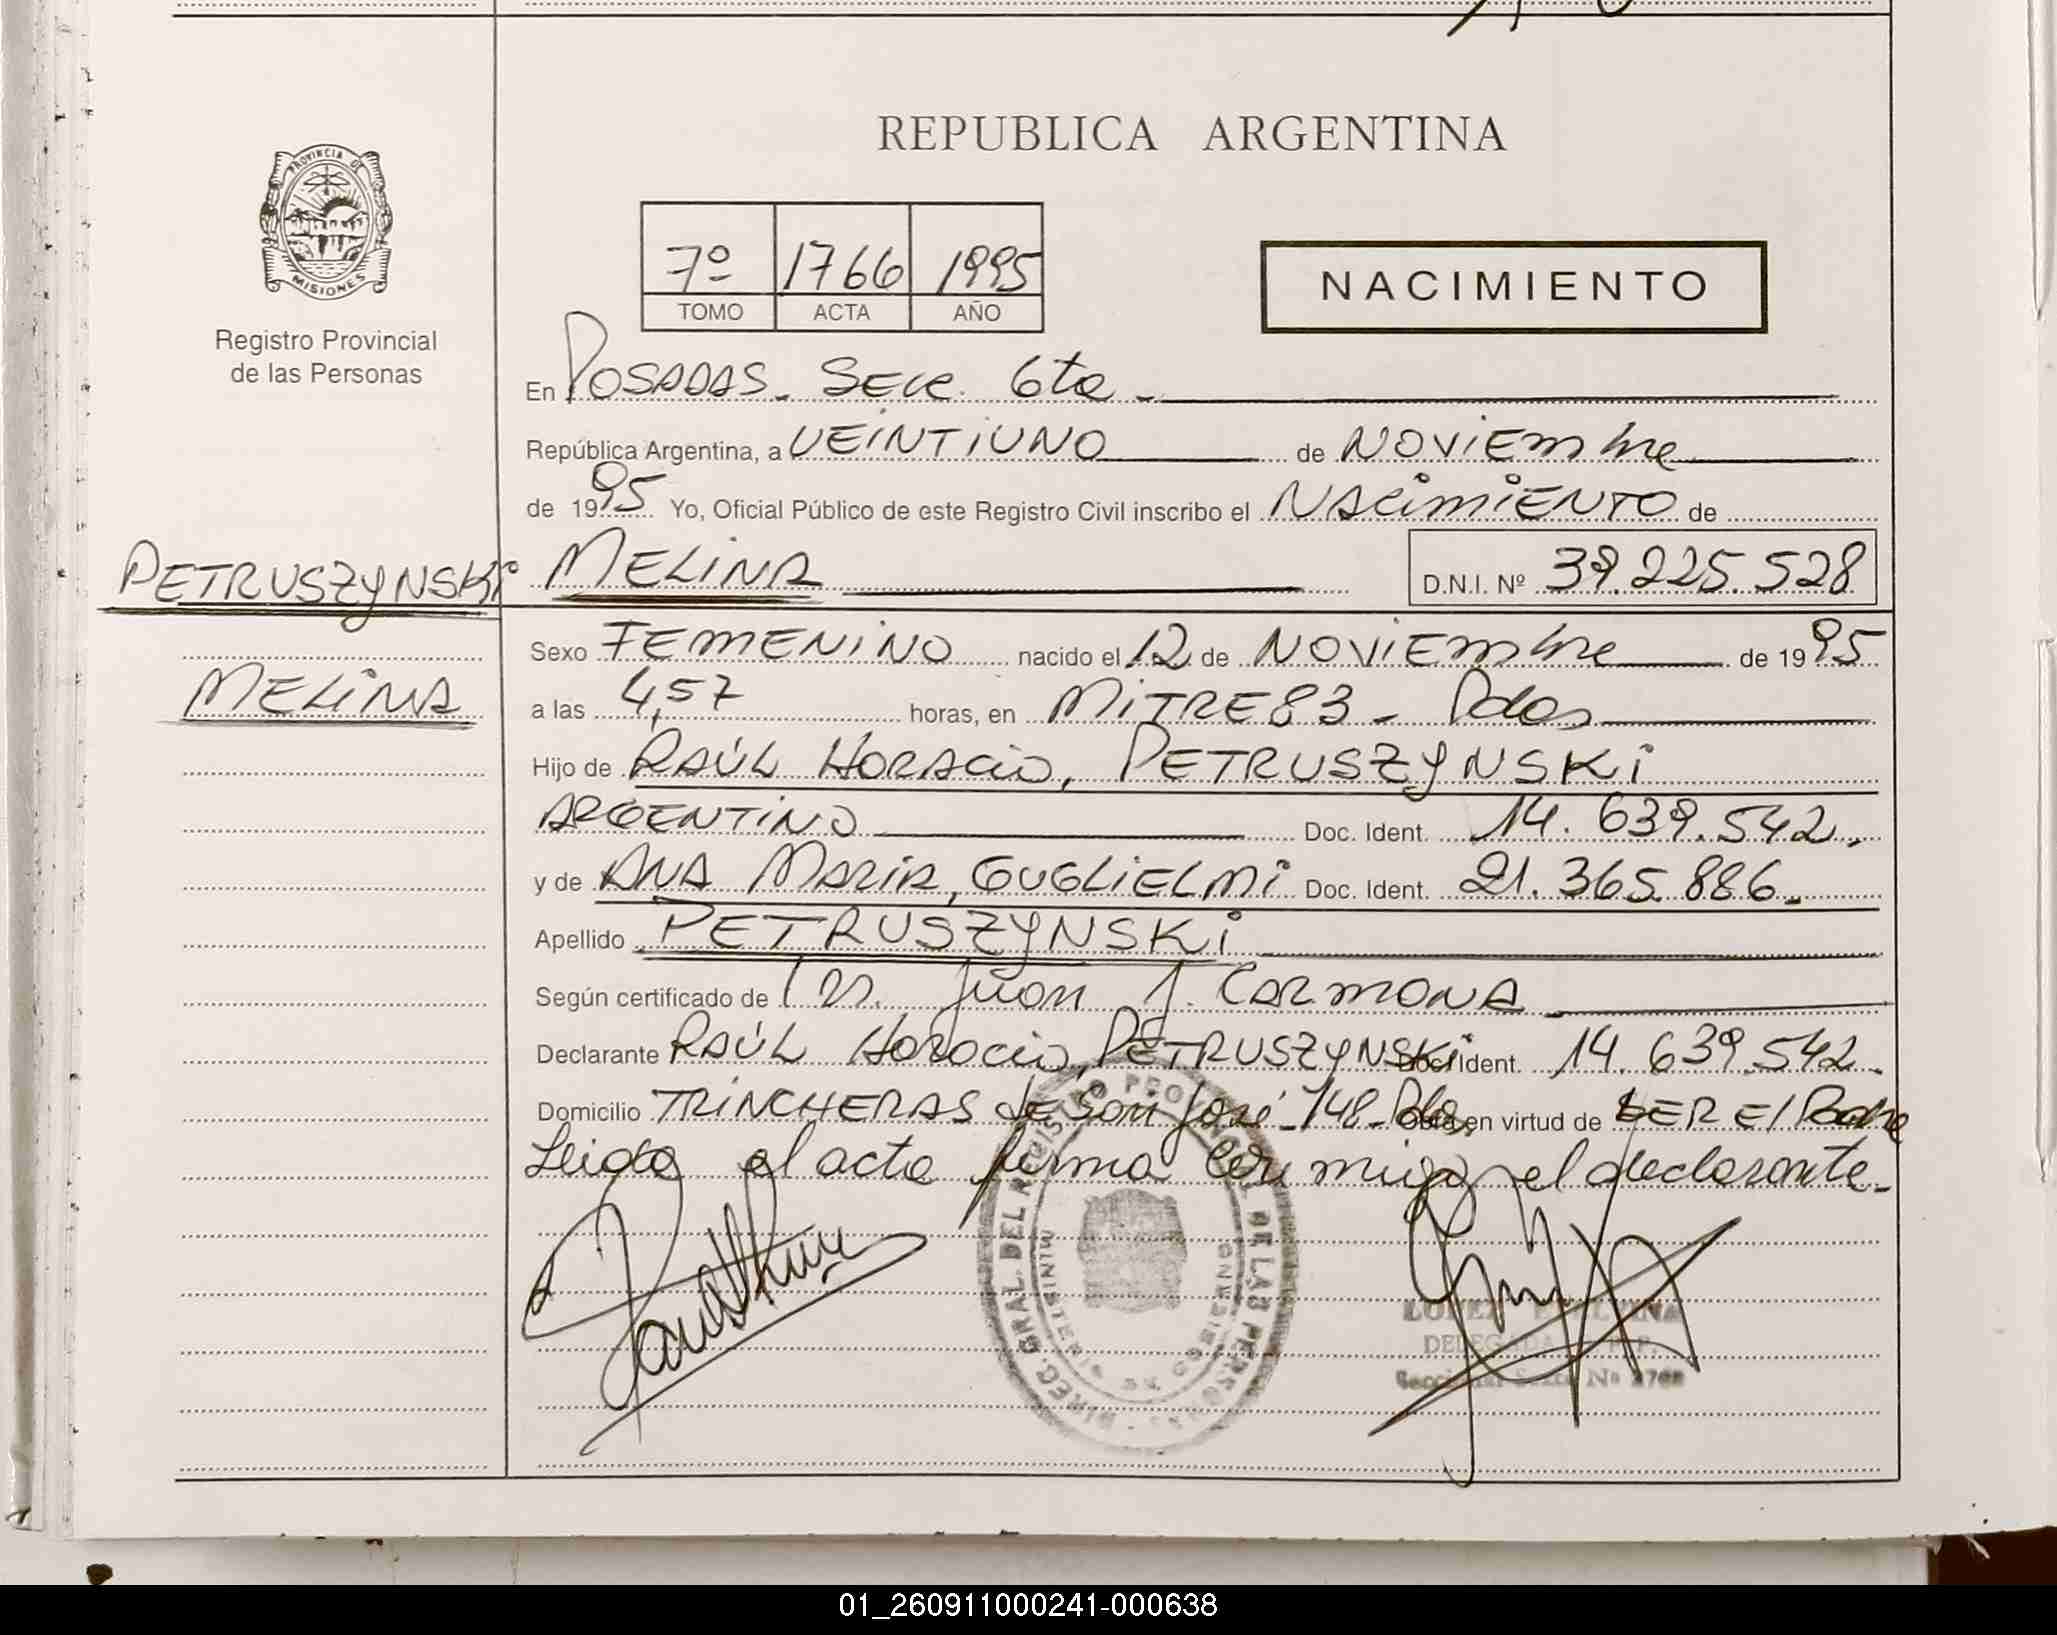 REPUBLICA ARGENTINA
PROVINCIA DE
MISIONES
Registro Provincial
de las Personas
7º 1766 1995
TOMO ACTA AÑO
NACIMIENTO
En POSADAS - Secc. 6ta -
República Argentina, a VEINTIUNO de NOVIEmbre
de 1995 Yo, Oficial Público de este Registro Civil inscribo el NAcimiENTO de
PETRUSZYNSKi MELINA D.N.I. Nº 39.225.528
Sexo FEMENiNO nacido el 12 de NOVIEmbre de 1995
MELINA
a las 4,57 horas, en MiTRE 83 - Pdas
Hijo de RAÚL HORACIO, PETRUSZYNSKi
ARGENTINO Doc. Ident. 14.639.542.
y de ANA MARIA, GUGLiELMi Doc. Ident. 21.365.886.
Apellido PETRUSZYNSKi
Según certificado de Dr. Juan J. CARMONA
Declarante RAÚL Horacio, PETRUSZYNSKi Doc. Ident. 14.639.542.
Domicilio TRINCHERAS de San José 748 - Pdas, Obra en virtud de SER El Padre
Leida el acta firma conmigo el declarante.-
DIREC. GRAL. DEL REGISTRO PROVINCIAL DE LAS PERSONAS
MINISTERIO DE GOBIERNO
LOPEZ
DELEGADA R.P.P.
Seccional Sexta Nº
01_260911000241-000638